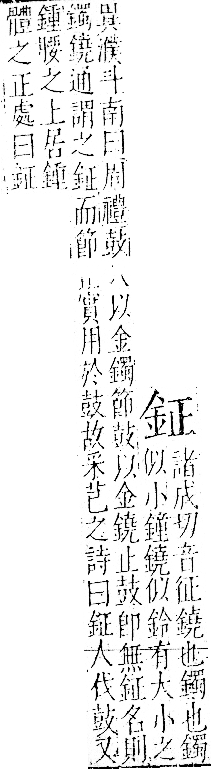 鉦
諸成切音征鐃也鐲也鐲
似小鐘鐃似鈴有大小之
異濮斗南曰周禮鼓人以金鐲節鼓以金鐃止鼓卽無鉦名則
鐲鐃通謂之鉦而節止實用於鼓故采芑之詩曰鉦人伐鼓又
鍾腰之上居鍾
體之正處曰鉦